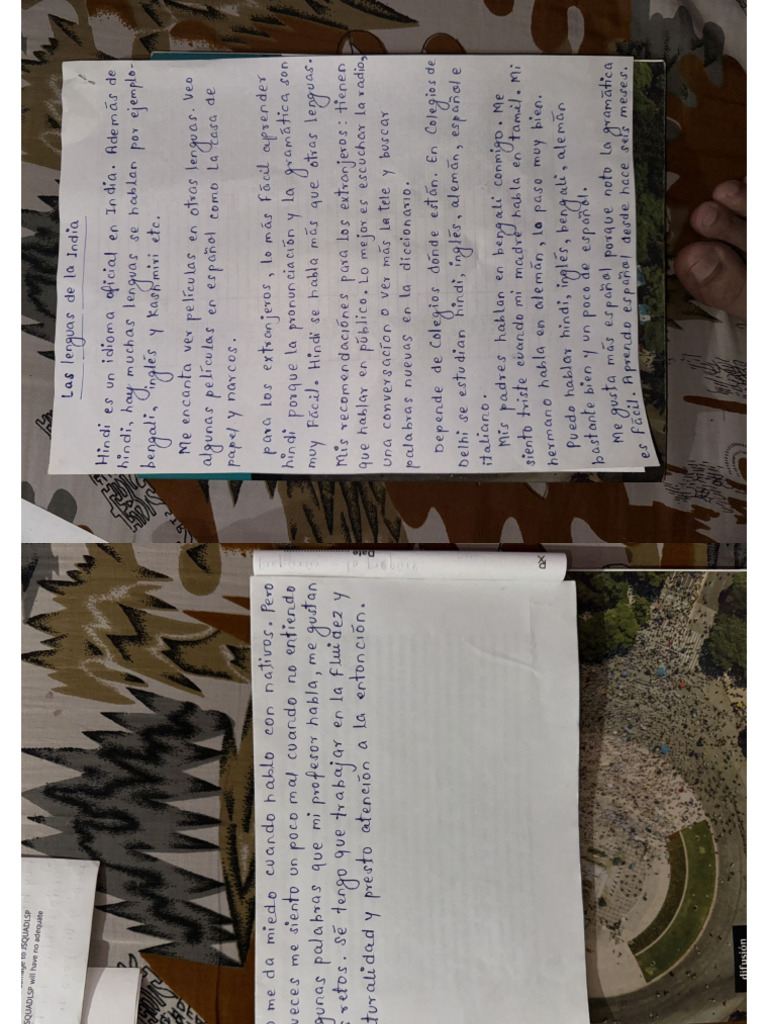 Las lenguas de la India
Hindi es un idioma oficial en India. Además de
hindi, hay muchas lenguas se hablan por ejemplo-
bengali, inglés y Kashmiri etc.
Me encanta ver películas en otras lenguas. Veo
algunas películas en español como la casa de
papel y narcos.
para los extranjeros, lo más Fácil aprender
hindi porque la pronunciación y la gramática son
muy Fácil. Hindi se habla más que otras lenguas.
Mis recomendaciónes para los extranjeros: tienen
que hablar en público. Lo mejor es escuchar la radio,
una conversacíon o ver más la tele y buscar
palabras nuevas en la diccionario.
Depende de Colegios dónde están. En Colegios de
Delhi se estudian hindi, inglés, alemán, español e
italiano.
Mis padres hablan en bengali conmigo. Me
siento triste cuando mi madre habla en tamil. Mi
hermano habla en alemán, lo paso muy bien.
Puedo hablar hindi, inglés, bengali, alemán
bastante bien y un poco de español.
Me gusta más español porque noto la gramática
es fácil. Aprendo español desde hace seis meses.
me da miedo cuando hablo con nativos. Pero
veces me siento un poco mal cuando no entiendo
gunas palabras que mi profesor habla, me gustan
retos. Sé tengo que trabajar en la fluidez y
turalidad y presto atención a la entonción.
Date
difusión
SQUADLSP will have no adequate